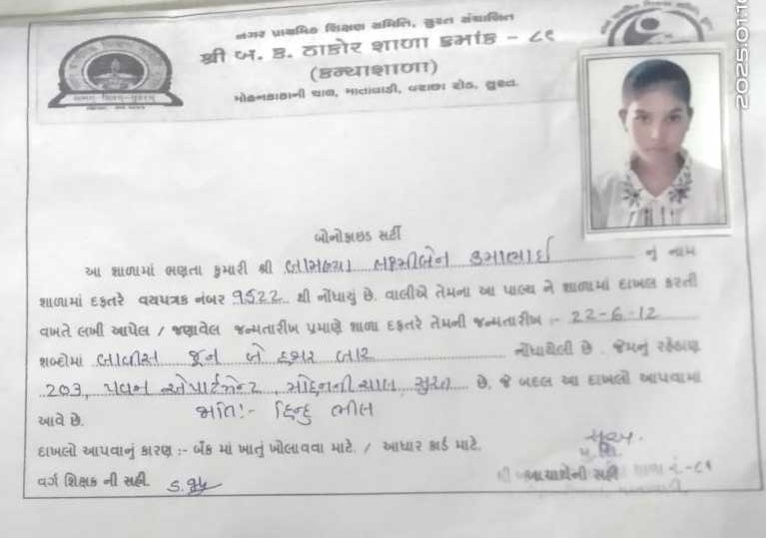 નગર પ્રાથમિક શિક્ષણ સમિતિ, સુરત સંચાલિત
શ્રી બ. ક. ઠાકોર શાળા ક્રમાંક - ૮૧
(કન્યાશાળા)
મોહનકાકાની ચાલ, માતાવાડી, વરાછા રોડ, સુરત.
2025.01.10
બોનોફાઇડ સર્ટી
આ શાળામાં ભણતા કુમારી શ્રી લક્ષ્મીબેન કમાભાઈ નું નામ
શાળામાં દફતરે વયપત્રક નંબર 9522 થી નોંધાયું છે. વાલીએ તેમના આ પાલ્ય ને શાળામાં દાખલ કરતી
વખતે લખી આપેલ / જણાવેલ જન્મતારીખ પ્રમાણે શાળા દફતરે તેમની જન્મતારીખ :- 22-6-12
શબ્દોમાં બાવીસ જૂન બે હજાર બાર નોંધાયેલી છે. જેમનું રહેઠાણ
203, પવન એપાર્ટમેન્ટ, મોહનની ચાલ, સુરત છે. જે બદલ આ દાખલો આપવામાં
આવે છે. જાતિ:- હિન્દુ ભીલ
દાખલો આપવાનું કારણ :- બેંક માં ખાતું ખોલાવવા માટે. / આધાર કાર્ડ માટે.
વર્ગ શિક્ષક ની સહી. આચાર્યની સહી